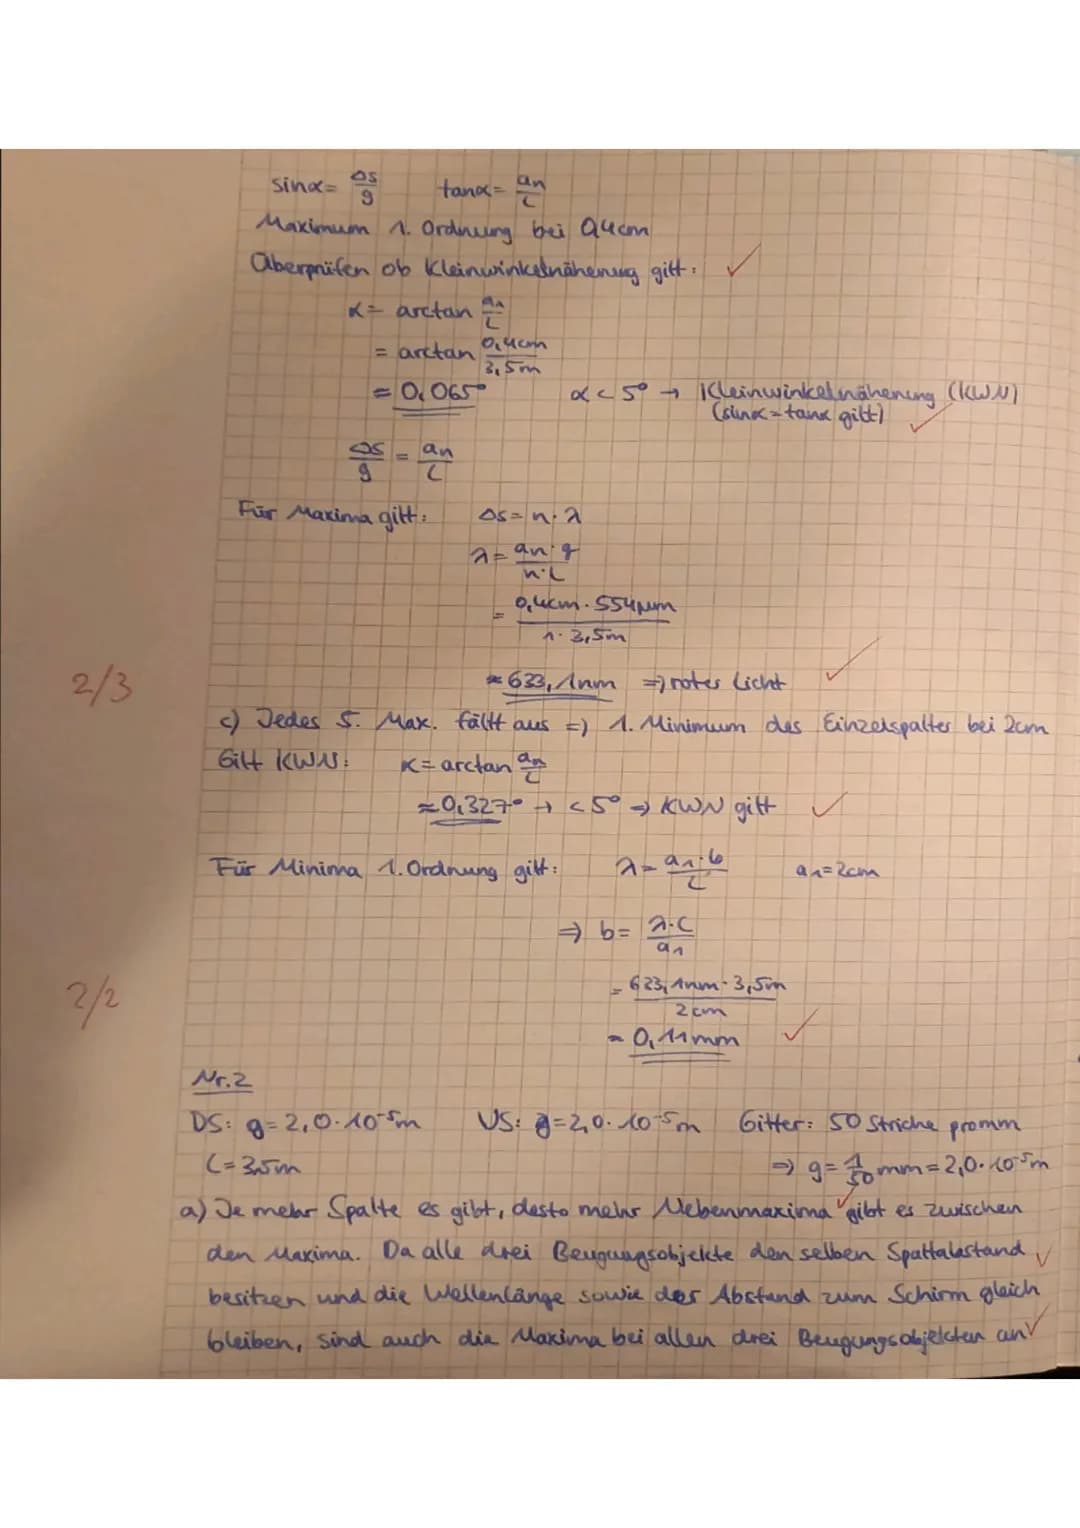 sinα = Δs/g    tanα = an/L
Maximum 1. Ordnung bei 0,4cm
Überprüfen ob Kleinwinkelnäherung gilt: ✓
α = arctan a1/L
= arctan 0,4cm/3,5m
≈ 0,065°    α < 5° → Kleinwinkelnäherung (KWN)
(sinα = tanα gilt) ✓
Δs/g = an/L
Für Maxima gilt:    Δs = n·λ
λ = an·g/n·L
= 0,4cm · 554µm/1·3,5m
2/3    ≈ 633,1nm ⇒ rotes Licht ✓
c) Jedes 5. Max. fällt aus ⇒ 1. Minimum des Einzelspaltes bei 2cm
Gilt KWN:    α = arctan an/L
≈ 0,327° → < 5° ⇒ KWN gilt ✓
Für Minima 1. Ordnung gilt:    λ = a1·b/L    a1 = 2cm
⇒ b = λ·L/a1
2/2    = 633,1nm · 3,5m/2cm
≈ 0,11mm ✓
Nr.2
DS: g = 2,0·10⁻⁵m    VS: g = 2,0·10⁻⁵m    Gitter: 50 Striche pro mm
L = 3,5m    ⇒ g = 1/50 mm = 2,0·10⁻⁵m
a) Je mehr Spalte es gibt, desto mehr Nebenmaxima ✓ gibt es zwischen
den Maxima. Da alle drei Beugungsobjekte den selben Spaltabstand ✓
besitzen und die Wellenlänge sowie der Abstand zum Schirm gleich
bleiben, sind auch die Maxima bei allen drei Beugungsobjekten an ✓